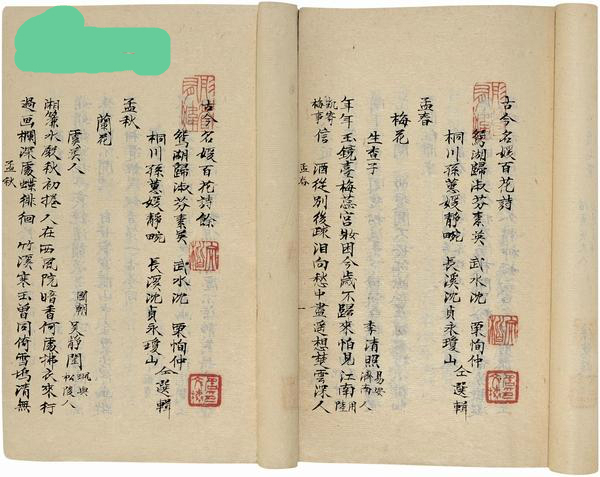 古今名媛百花詩
鴛湖歸淑芬素英 武水沈 栗恂仲
桐川孫蕙媛靜畹 長溪沈貞永瓊山 仝選輯
孟春
梅花
生查子 李清照 易安濟南人
年年玉鏡臺梅蕊宮妝困今歲不歸來怕見江南用陸
凱寄梅事信 酒從別後疎泪向愁中盡遥想楚雲深人
孟春 一
古今名媛百花詩餘
鴛湖歸淑芬素英 武水沈 栗恂仲
桐川孫蕙媛靜畹 長溪沈貞永瓊山 仝選輯
孟秋
蘭花
虞美人 國朝 吳靜閨 松陵人
湘簾水殿秋初捲人在西風院暗香何處拂衣來行
過画欄深處蝶徘徊 竹溪寒玉曾同倚雪塢清無
孟秋